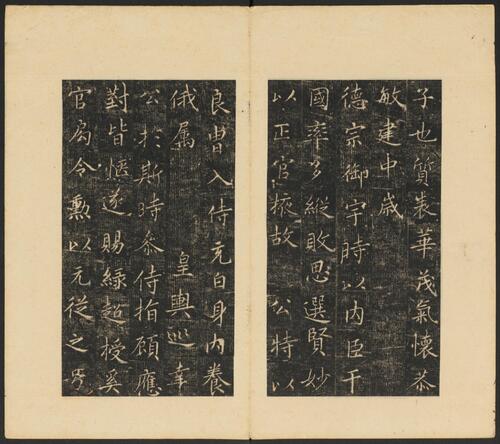 子也質表華茂氣懷恭
敏建中歲
德宗御宇時以內臣干
國率多縱敗思選賢妙
以正官掖故 公特以
良胄入侍充白身內養
俄属 皇輿巡幸
公於斯時叅侍指顧應
對皆愜遂賜綠超授奚
官局令勳以元從之号